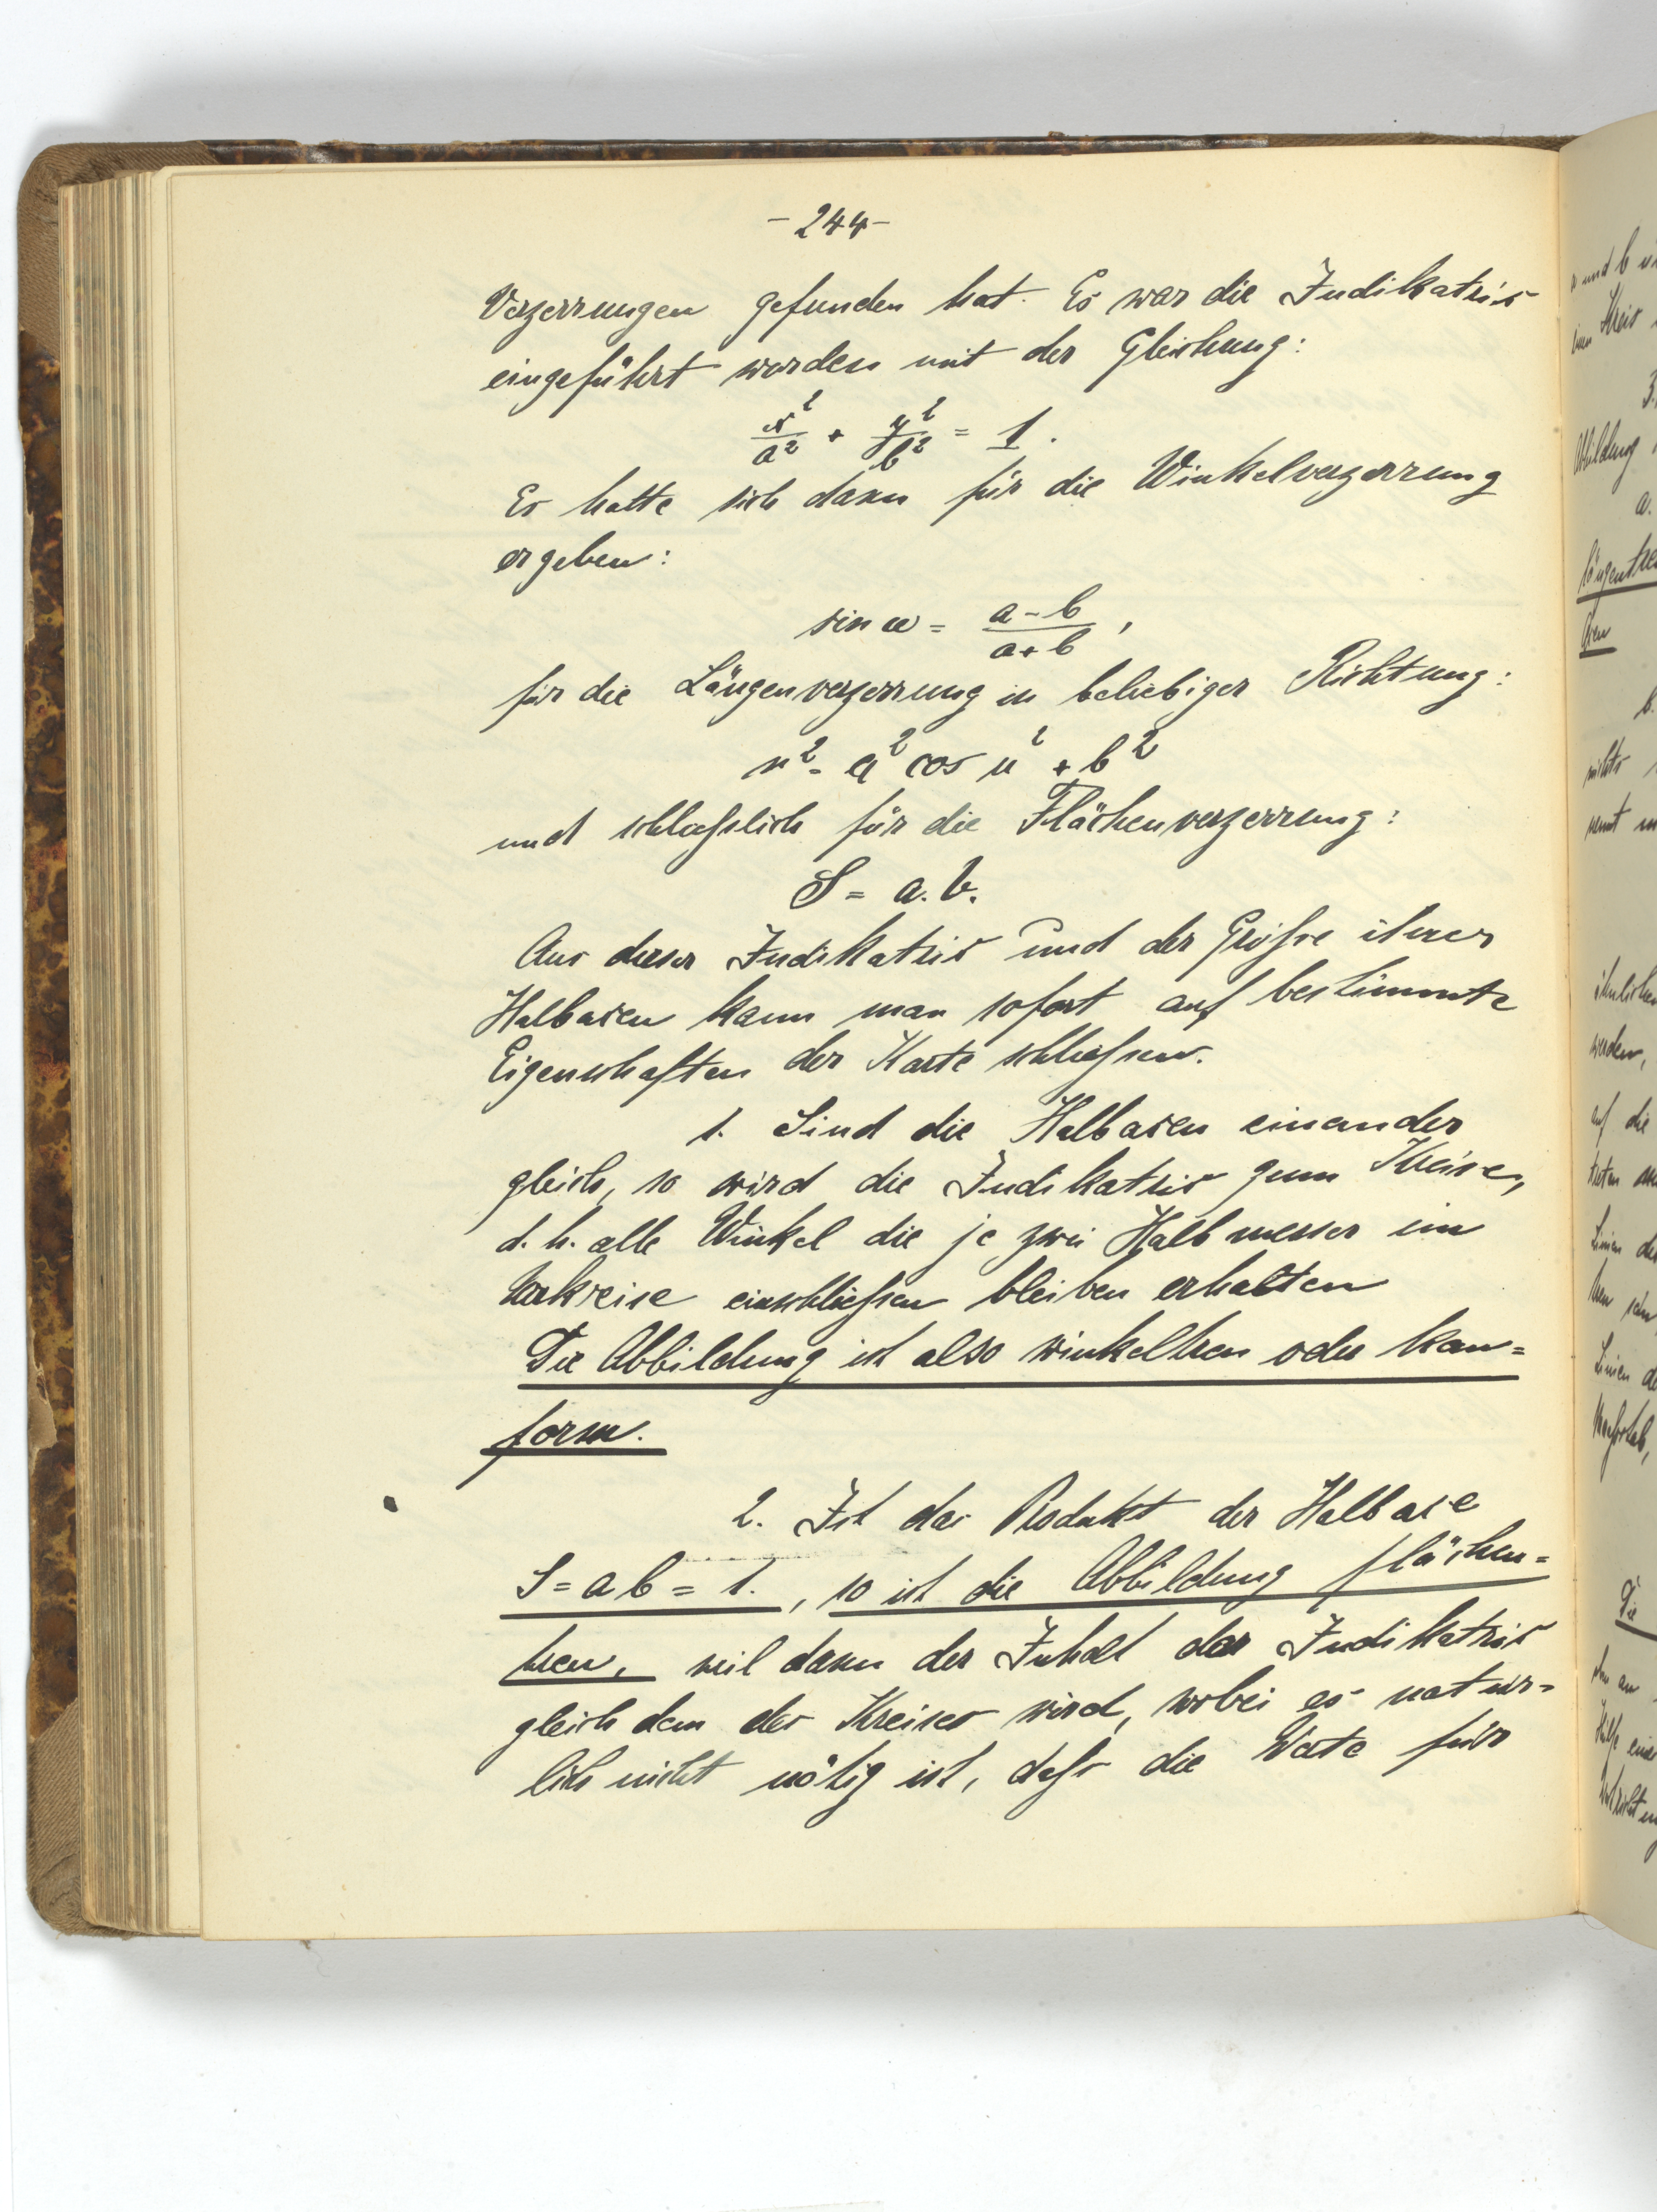 - 244 -
Verzerrungen gefunden hat. Es war die Indikatrix
eingeführt worden mit der Gleichung:
x²/a² + y²/b² = 1.
Es hatte sich dann für die Winkelverzerrung
ergeben:
sin ω = a-b/a+b,
für die Längenverzerrung in beliebiger Richtung:
n² = a² cos u² + b²
und schließlich für die Flächenverzerrung:
S = a.b.
Aus dieser Indikatrix und der Größe ihrer
Halbaxen kann man sofort auf bestimmte
Eigenschaften der Karte schließen.
1. Sind die Halbaxen einander
gleich, so wird die Indikatrix zum Kreise,
d.h. alle Winkel die je zwei Halbmesser im
Urkreise einschließen bleiben erhalten
Die Abbildung ist also winkeltreu oder kon=
form.
2. Ist das Produkt der Halbaxe
S = a b = 1., so ist die Abbildung flächen=
treu, weil dann der Inhalt der Indikatrix
gleich dem des Kreises wird, wobei es natür=
lich nicht nötig ist, daß die Werte für
a.
3.
b.